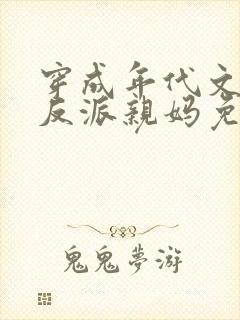 穿成年代文
反派亲妈免
鬼鬼夢游